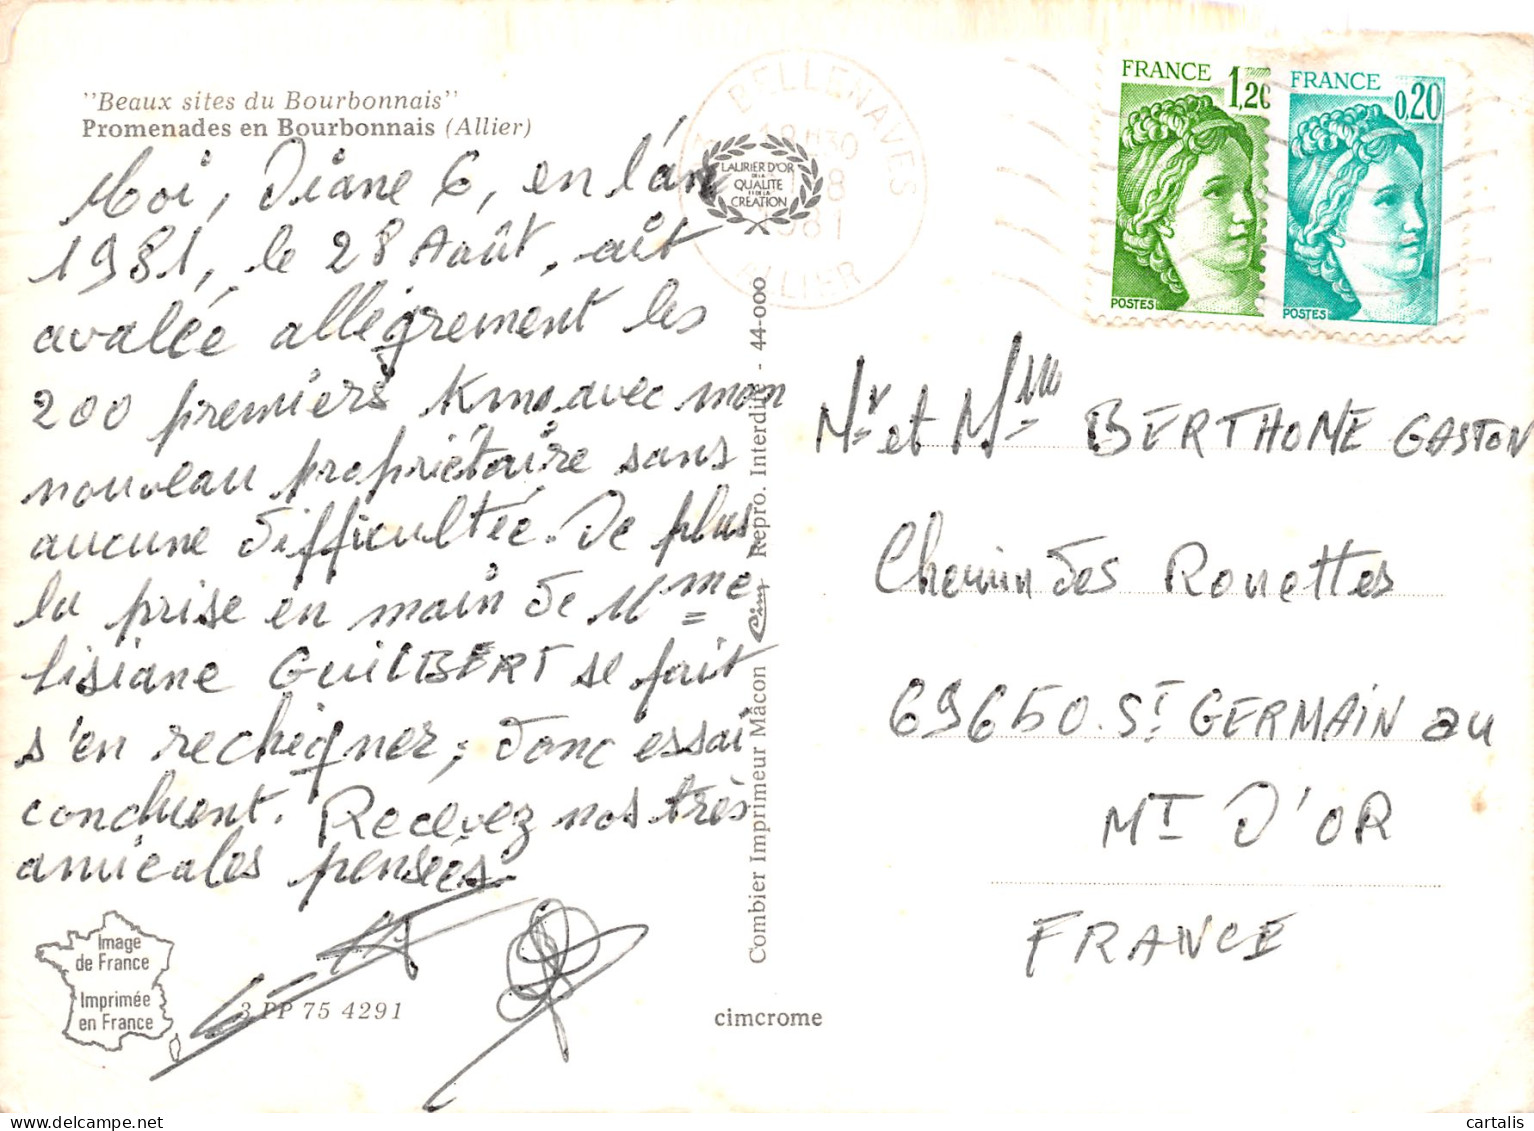 "Beaux sites du Bourbonnais"
Promenades en Bourbonnais (Allier)
Moi, Diane 6, en l'an
1981, le 28 Août, ait
avalée allégrement les
200 premiers Kms avec mon
nouveau propriétaire sans
aucune difficultée. De plus
la prise en main de Mme
Lisiane GUILBERT se fait
s'en rechigner, donc essai
concluent. Recevez nos très
amicales pensées.
Image
de France
Imprimée
en France
3 PP 75 4291
cimcrome
Combier Imprimeur Mâcon Cim Repro. Interdite - 44-000
LAURIER D'OR
DE LA
QUALITE
ET DE LA
CREATION
BELLENAVES
18H30
8
1981
ALLIER
FRANCE 1,20
POSTES
FRANCE 0,20
POSTES
Mr et Mlle BERTHOME GASTON
Chemin des Rouettes
69650. ST GERMAIN au
MT D'OR
FRANCE
cartes-postales-marcel.com